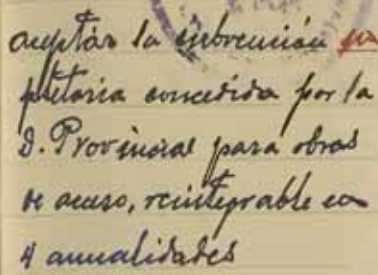 aceptar la subvención
pletoria concedida por la
D. Provincial para obras
de acceso, reintegrable en
4 anualidades